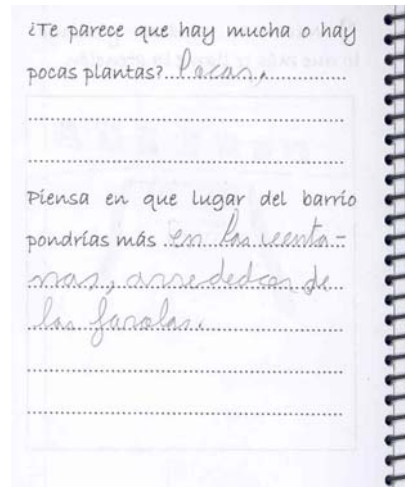 ¿Te parece que hay mucha o hay
pocas plantas?...Pocas,
Piensa en que lugar del barrio
pondrías más ..en las venta-
nas, arrededor de
las farolas.